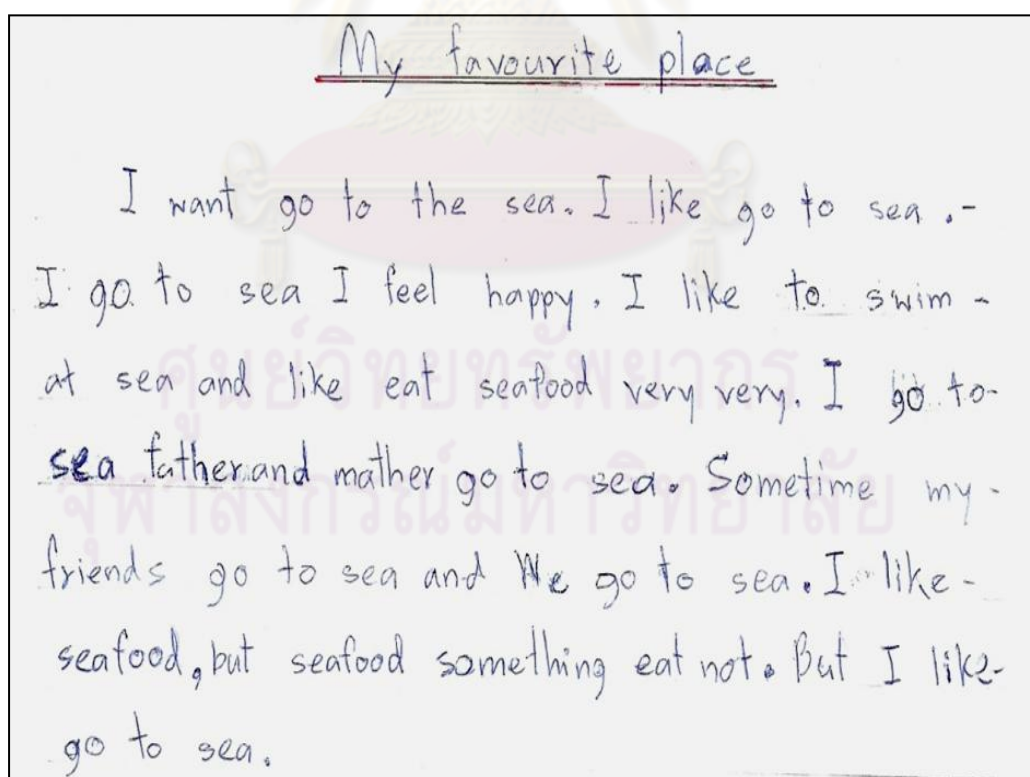 My favourite place
I want go to the sea. I like go to sea .-
I go to sea I feel happy. I like to swim -
at sea and like eat seafood very very. I go to-
sea father and mather go to sea. Sometime my-
friends go to sea and We go to sea. I like-
seafood, but seafood something eat not. But I like-
go to sea.
ศูนย์วิทยทรัพยากร
จุฬาลงกรณ์มหาวิทยาลัย